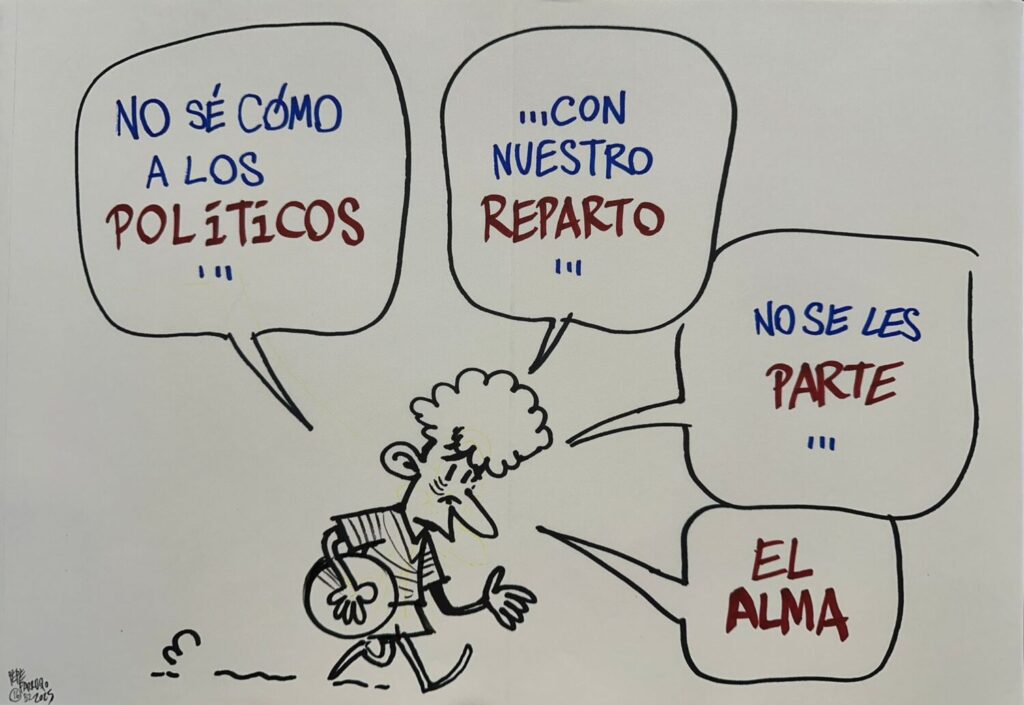 NO SÉ CÓMO
A LOS
POLíTiCOS
...
...CON
NUESTRO
REPARTO
...
NO SE LES
PARTE
...
EL
ALMA
PEPE
FARRUQO
2025